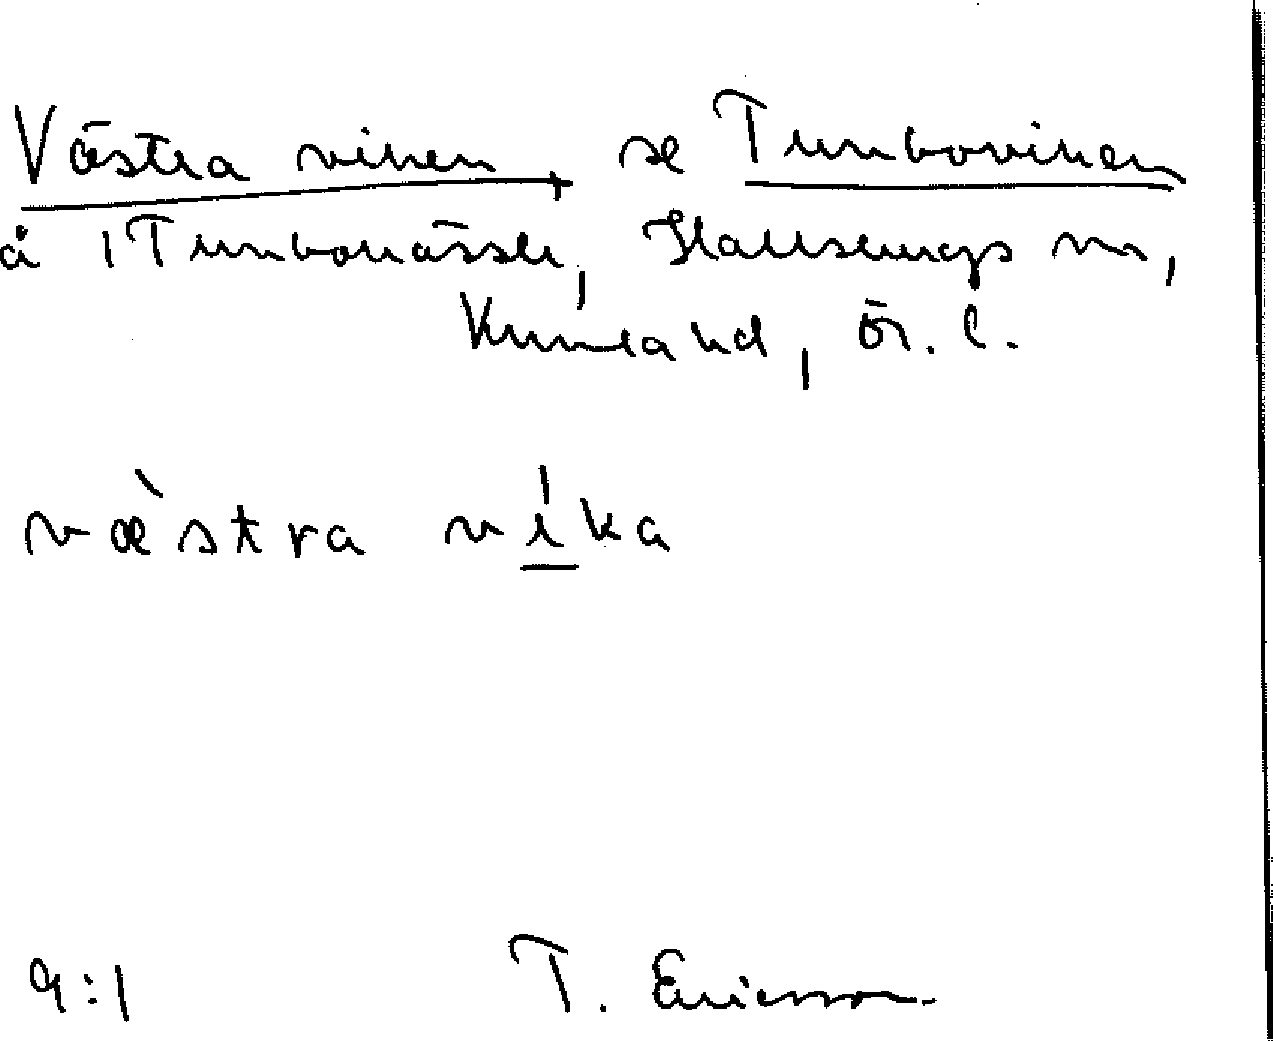 Västra viken, se Tunboviken
å 1 Tunbonässli, Hallsbergs
Kumla hd, Ör. l.
væ̀stra víka
9:1 T. Ericsson